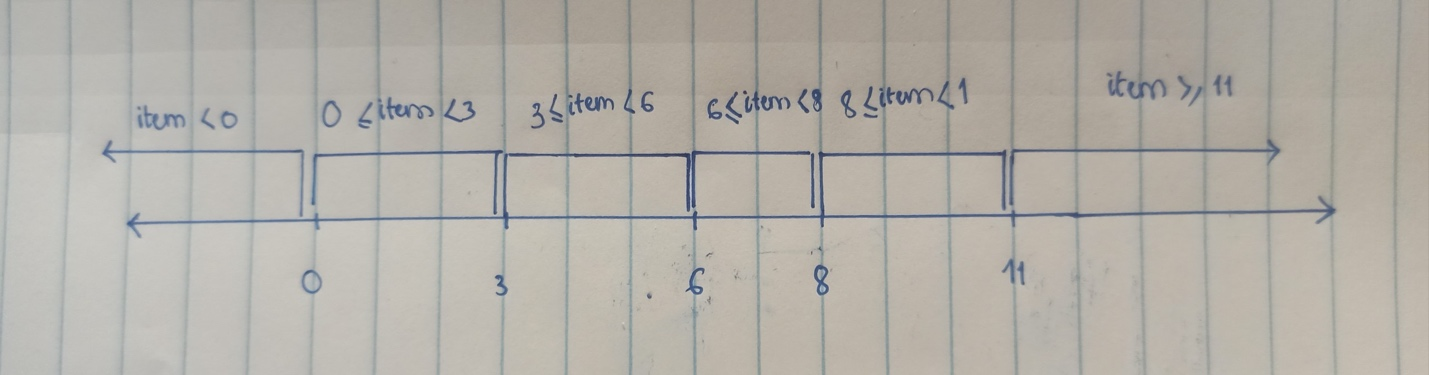 item <0 0 ≤item <3 3≤item <6 6≤item <8 8≤item <1 item ≥ 11
0 3 6 8 11